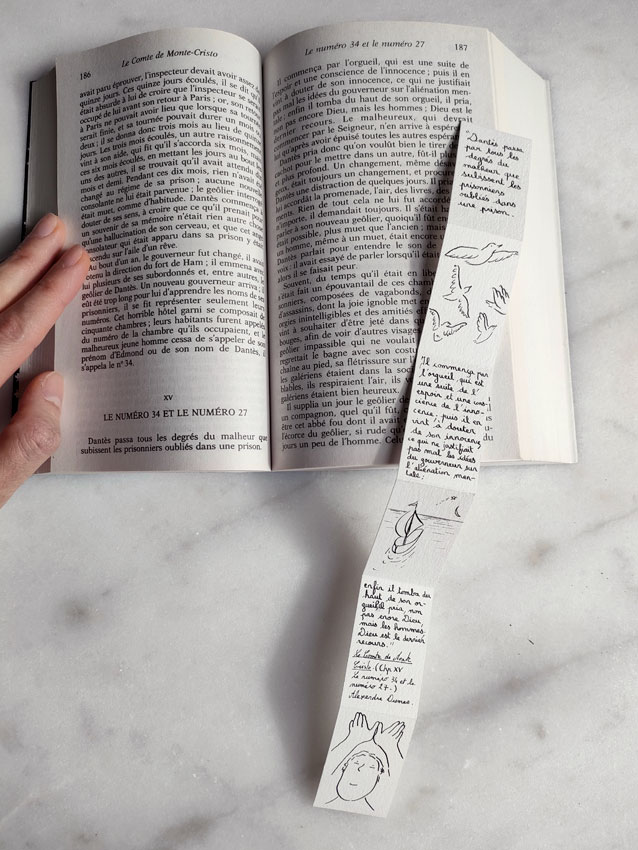 186 Le Comte de Monte-Cristo
avait paru éprouver, l'inspecteur devait avoir assez de
quinze jours. Ces quinze jours écoulés, il se dit qu'il
était absurde à lui de croire que l'inspecteur se
occupé de lui avant son retour à Paris ; or, son
à Paris ne pouvait avoir lieu que lorsque sa tournée
serait finie, et sa tournée pouvait durer un mois ou
deux ; il se donna donc trois mois au lieu de quinze
jours. Les trois mois écoulés, un autre raisonnement
vint à son aide, qui fit qu'il s'accorda six mois, mais
ces six mois écoulés, en mettant les jours au bout les
uns des autres, il se trouvait qu'il avait attendu dix
mois et demi. Pendant ces dix mois, rien n'avait été
changé au régime de sa prison ; aucune nouvelle
consolante ne lui était parvenue ; le geôlier interrogé
était muet, comme d'habitude. Dantès commença à
douter de ses sens, à croire que ce qu'il prenait pour
un souvenir de sa mémoire n'était rien autre chose
qu'une hallucination de son cerveau, et que cet ange
consolateur qui était apparu dans sa prison y était
descendu sur l'aile d'un rêve.
Au bout d'un an, le gouverneur fut changé, il avait
obtenu la direction du fort de Ham ; il emmena avec
lui plusieurs de ses subordonnés et, entre autres, le
geôlier de Dantès. Un nouveau gouverneur arriva ; il
eût été trop long pour lui d'apprendre les noms de ses
prisonniers, il se fit représenter seulement leurs
numéros. Cet horrible hôtel garni se composait de
cinquante chambres ; leurs habitants furent appelés
du numéro de la chambre qu'ils occupaient, et le
malheureux jeune homme cessa de s'appeler de son
prénom d'Edmond ou de son nom de Dantès, il
s'appela le n° 34.
XV
LE NUMÉRO 34 ET LE NUMÉRO 27
Dantès passa tous les degrés du malheur que
subissent les prisonniers oubliés dans une prison.
Le numéro 34 et le numéro 27 187
Il commença par l'orgueil, qui est une suite de
l'espoir et une conscience de l'innocence ; puis il en
vint à douter de son innocence, ce qui ne justifiait
pas mal les idées du gouverneur sur l'aliénation men-
tale ; enfin il tomba du haut de son orgueil, il pria,
non pas encore Dieu, mais les hommes ; Dieu est le
dernier recours. Le malheureux, qui devrait
commencer par le Seigneur, n'en arrive à espérer
après avoir épuisé toutes les autres
Dantès pria donc qu'on voulût bien le tirer de
cachot pour le mettre dans un autre, fût-il plus
plus profond. Un changement, même
était toujours un changement, et
Dantès une distraction de quelques jours. Il pria
accordât la promenade, l'air, des livres, des
Rien de tout cela ne lui fut accordé
n'importe, il demandait toujours. Il s'était
à son nouveau geôlier, quoiqu'il fût en
possible, plus muet que l'ancien ; mais
un homme, même à un muet, était encore
Dantès parlait pour entendre le son de
voix : il avait essayé de parler lorsqu'il était
alors il se faisait peur.
Souvent, du temps qu'il était en
s'était fait un épouvantail de ces
prisonniers, composées de vagabonds, de
d'assassins, dont la joie ignoble met en
orgies inintelligibles et des amitiés
vint à souhaiter d'être jeté dans
bouges, afin de voir d'autres visages
geôlier impassible qui ne voulait
regrettait le bagne avec son
chaîne au pied, sa flétrissure sur
les galériens étaient dans la
blables, ils respiraient l'air, ils
galériens étaient bien heureux.
Il supplia un jour le geôlier de
un compagnon, quel qu'il fût,
être cet abbé fou dont il avait
l'écorce du geôlier, si rude
jours un peu de l'homme.
"Dantès passa
par tous les
degrés du
malheur que
subissent les
prisonniers
oubliés dans
une prison.
Il commença par
l'orgueil qui est
une suite de l'
espoir et une cons-
cience de l'inno-
cence ; puis il en
vint à douter
de son innocence
ce qui ne justifiait
pas mal les idées
du gouverneur sur
l'aliénation men-
tale ;
enfin il tomba du
haut de son or-
gueil, il pria, non
pas encore Dieu,
mais les hommes.
Dieu est le dernier
recours."
Le Comte de Monte
Cristo. (Chp XV
le numéro 34 et le
numéro 27.)
Alexandre Dumas.